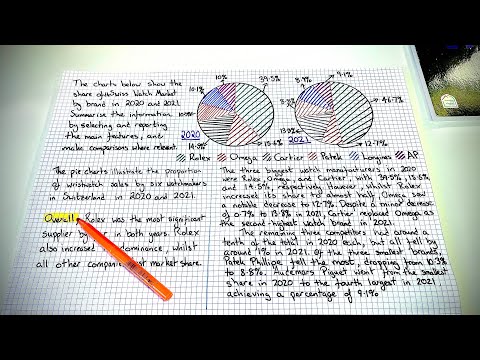 The charts below show the
share of the Swiss Watch Market
by brand in 2020 and 2021
Summarise the information
by selecting and reporting
the main features, and
make comparisons where relevant.
10%
39.5%
10.1%
2020
14.5%
15.6%
9.1%
8.9%
46.7%
2021
12.7%
Rolex Omega Cartier Patek Longines AP
The pie charts illustrate the proportion
of wristwatch sales by six watchmakers
in Switzerland in 2020 and 2021.
Overall, Rolex was the most significant
supplier by in both years. Rolex
also increased dominance, whilst
all other companies lost market share.
The three biggest watch manufacturers in 2020
were Rolex, Omega and Cartier, with 39.5%, 15.6%
and 14.5%, respectively. However, whilst Rolex
increased its share to almost half, Omega saw
a notable decrease to 12.7%. Despite a minor decrease
of 0.7% to 13.8% in 2021, Cartier replaced Omega as
the second-highest watch brand in 2021.
The remaining three competitors had around
a tenth of the total in 2020 each, but all fell by
around 1% in 2021. Of the three smallest brands,
Patek Philippe fell the most, dropping from 10.3%
to 8.8%. Audemars Piguet went from the smallest
share in 2020 to the fourth largest in 2021
achieving a percentage of 9.1%